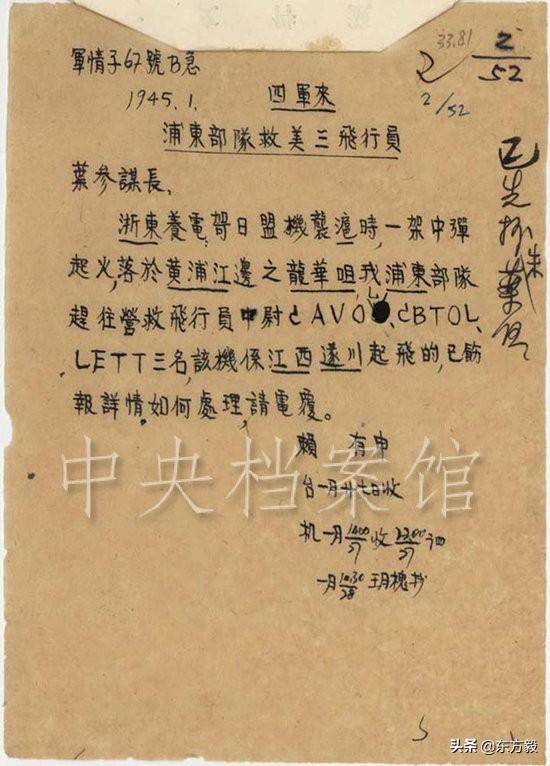 33.81
2
2/52
2/52
軍情子67號B急
1945.1.
四軍來
浦東部隊救美三飛行員
葉參謀長、
浙東養電哿日盟機襲滬時,一架中彈
起火,落於黄浦江邊之龍華咀,我浦東部隊
趕往營救飛行員中尉 CAVO、CBTOL、
LETT三名,該機係江西遂川起飛的,已飭
報詳情,如何處理,請電覆。
賴 有申
台一月廿七日收
机一月1400/27收2200/27
一月10.30/28 玥槐抄
已先抄
中央档案馆
头条@东方毅